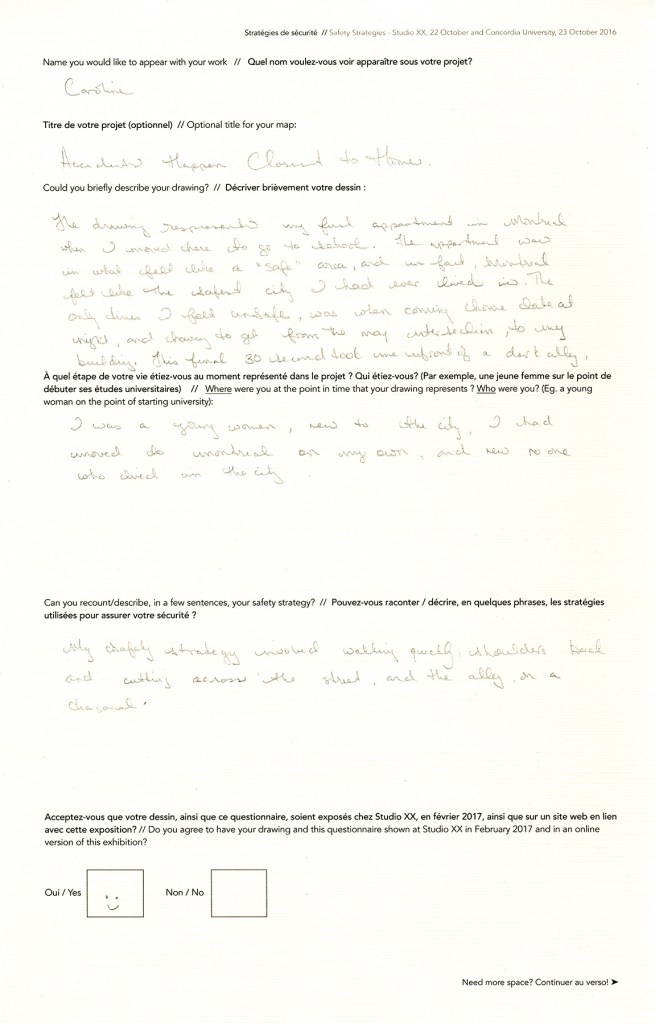 Stratégies de sécurité // Safety Strategies - Studio XX, 22 October and Concordia University, 23 October 2016
Name you would like to appear with your work // Quel nom voulez-vous voir apparaître sous votre projet?
Caroline
Titre de votre projet (optionnel) // Optional title for your map:
Accidents Happen Closest to Home.
Could you briefly describe your drawing? // Décriver brièvement votre dessin :
The drawing represents my first appartment in Montreal
when I moved there to go to school. The appartment was
in what felt like a "safe" area, and in fact, Montreal
felt like the safest city I had ever lived in. The
only times I felt unsafe, was when coming home late at
night, and having to get from the may intersection, to my
building. This final 30 second took me infront of a dark ally.
À quel étape de votre vie étiez-vous au moment représenté dans le projet ? Qui étiez-vous? (Par exemple, une jeune femme sur le point de
débuter ses études universitaires) // Where were you at the point in time that your drawing represents ? Who were you? (Eg. a young
woman on the point of starting university):
I was a young women, new to the city, I had
moved to montreal on my own, and new no one
who lived in the city.
Can you recount/describe, in a few sentences, your safety strategy? // Pouvez-vous raconter / décrire, en quelques phrases, les stratégies
utilisées pour assurer votre sécurité ?
My safety strategy involved walking quickly, shoulders back
and cutting across the street, and the ally, on a
diagonal.
Acceptez-vous que votre dessin, ainsi que ce questionnaire, soient exposés chez Studio XX, en février 2017, ainsi que sur un site web en lien
avec cette exposition? // Do you agree to have your drawing and this questionnaire shown at Studio XX in February 2017 and in an online
version of this exhibition?
Oui / Yes Non / No
Need more space? Continuer au verso! ➤